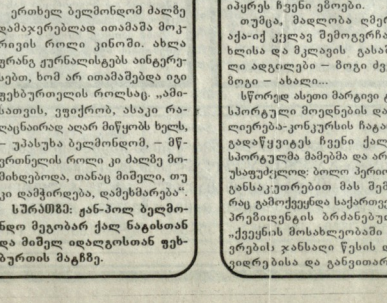 ერთხელ ბელმონდომ ძალზე
დამაჯერებლად ითამაშა მოკ-
რივის როლი კინოში. ახლა
ფრანგ ჟურნალისტებს აინტერე-
სებთ, ხომ არ ითამაშებდა იგი
ფეხბურთელის როლსაც. „ამი-
სათვის, ვფიქრობ, ასაკი რა-
ლაცნაირად აღარ მიწყობს ხელს,
— უპასუხა ბელმონდომ, — მწ-
ვრთნელის როლი კი ძალზე მო-
მიხდებოდა, თანაც მიშელი, თუ
კი დამჭირდება, დამეხმარება“.
სურათზე: ჟან-პოლ ბელმო-
ნდო მეგობარ ქალ ნატისთან
და მიშელ იდალგოსთან ფეხ-
ბურთის მატჩზე.
იპყრეს ჩვენი ეზოები.
თუმცა, მადლობა ღმერ
აქა-იქ კვლავ შემოგვრჩა
ხლისა და მკლავის გასაშ
ლი ადგილები — ზოგი ძვ
ზოგი — ახალი...
სწორედ ასეთი მარტივი ტ
სპორტული მოედნების და
ლიერება-კონკურსის ჩატა
გადაწყვიტეს ჩვენი ქალ
სპორტულმა მამებმა და არ
უსაფუძვლოდ: ბოლო პერიო
განსაკუთრებით მას შემ
რაც გამოქვეყნდა საქართვე
პრეზიდენტის ბრძანებუ
„ქვეყნის მოსახლეობაში
ვრების ჯანსაღი წესის დ
ვიდრებისა და განვითარ